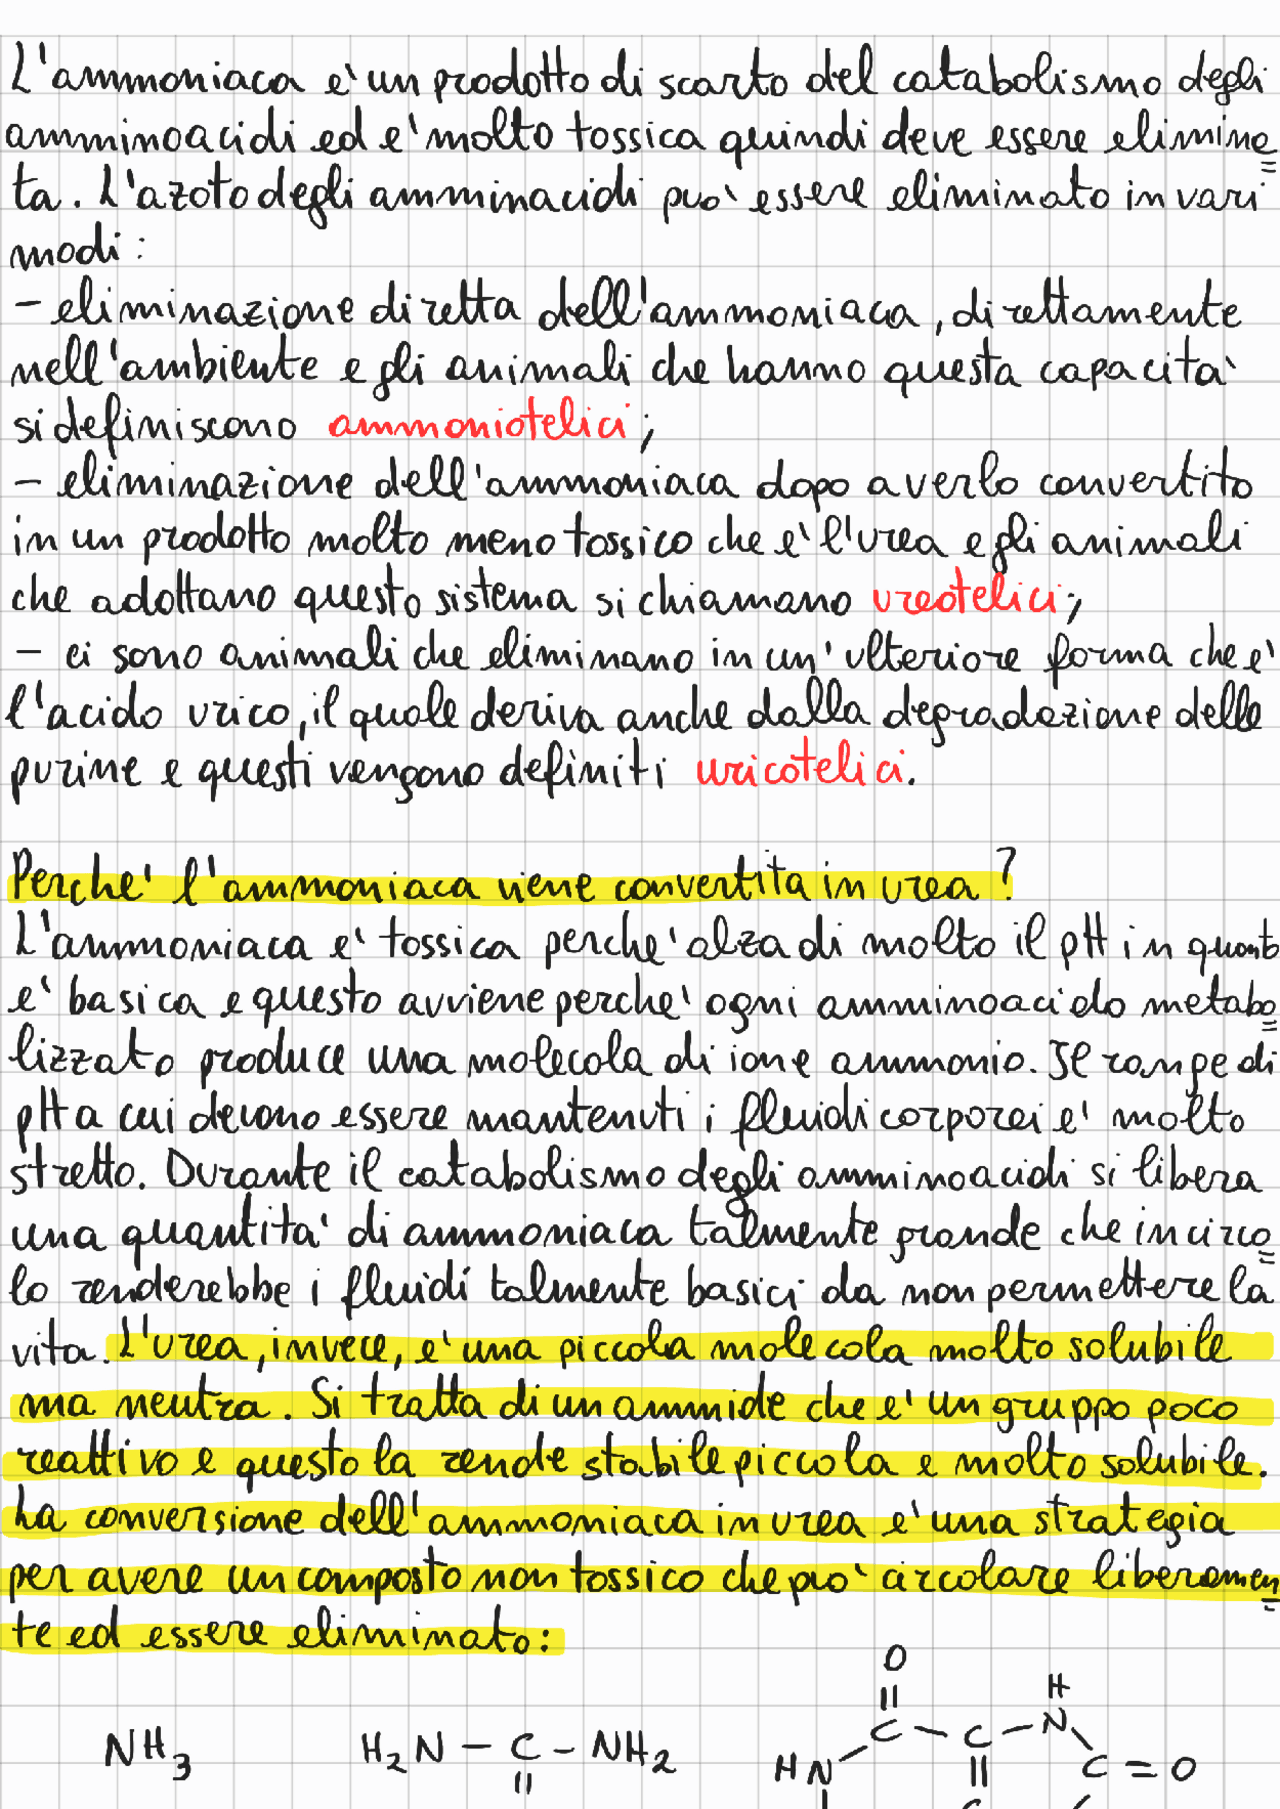 L'ammoniaca e' un prodotto di scarto del catabolismo degli
amminoacidi ed e' molto tossica quindi deve essere elimina=
ta. L'azoto degli amminacidi puo' essere eliminato in vari
modi:
- eliminazione diretta dell'ammoniaca, direttamente
nell'ambiente e gli animali che hanno questa capacita'
si definiscono ammoniotelici;
- eliminazione dell'ammoniaca dopo averlo convertito
in un prodotto molto meno tossico che e' l'urea e gli animali
che adottano questo sistema si chiamano ureotelici;
- ci sono animali che eliminano in un' ulteriore forma che e'
l'acido urico, il quale deriva anche dalla degradazione delle
purine e questi vengono definiti uricotelici.
Perche' l'ammoniaca viene convertita in urea?
L'ammoniaca e' tossica perche' alza di molto il pH in quanto
e' basica e questo avviene perche' ogni amminoacido metabo=
lizzato produce una molecola di ione ammonio. Il range di
pH a cui devono essere mantenuti i fluidi corporei e' molto
stretto. Durante il catabolismo degli amminoacidi si libera
una quantita' di ammoniaca talmente grande che in circo=
lo renderebbe i fluidi talmente basici da non permettere la
vita. L'urea, invece, e' una piccola molecola molto solubile
ma neutra. Si tratta di un ammide che e' un gruppo poco
reattivo e questo la rende stabile piccola e molto solubile.
La conversione dell'ammoniaca in urea e' una strategia
per avere un composto non tossico che puo' circolare liberamen=
te ed essere eliminato:
O
H
C - C - N
NH3 H2N - C - NH2 HN C = O